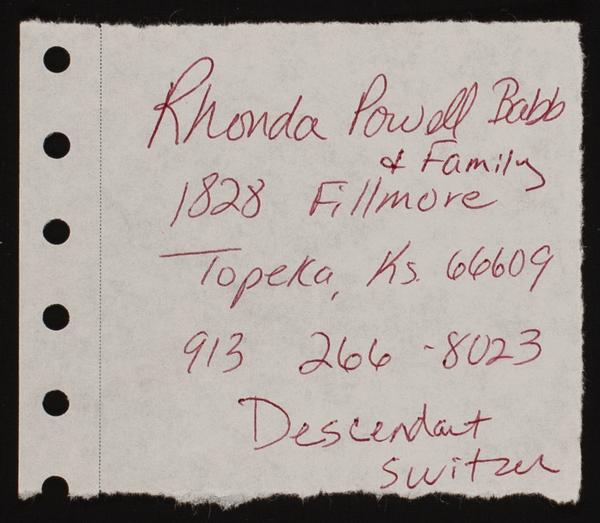 Rhonda Powell Babb
& Family
1828 Fillmore
Topeka, Ks. 66609
913 266-8023
Descendant
Switzer